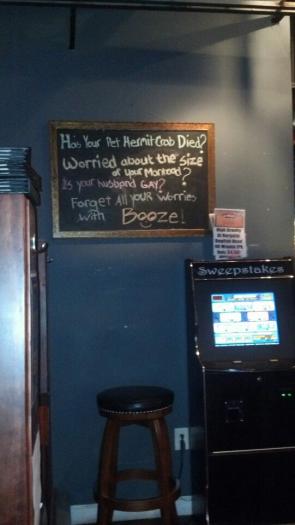 Has Your Pet Hermit Crab Died?
Worried about the size
of your Manhood?
Is your husband GAY?
Forget All YOUR Worries
with Booze!
High Gravity
Sweepstakes